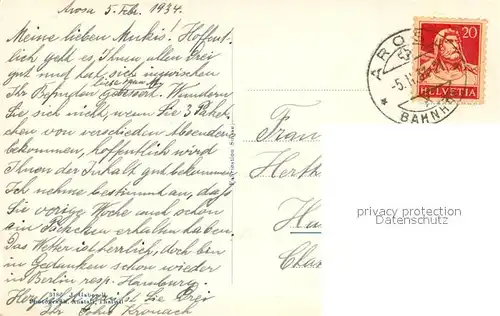 Arosa 5. Febr. 1934.
Meine lieben Mukis! Hoffent-
lich geht es Ihnen allen drei
gut und hat sich inzwischen
Ihr Befinden gebessert. Wundern
Sie sich nicht, wenn Sie 3 Paket-
chen von verschieden Absendern
bekommen, hoffentlich wird
Ihnen der Inhalt gut bekommen.
Ich nehme bestimmt an, daß
Sie vorige Woche auch schon
ein Päckchen erhalten haben.
Das Wetter ist herrlich, doch bin
in Gedanken schon wieder
in Berlin resp. Hamburg.
Herzl. Sie Drei
Ihr Kronach
Frau
Herth
Ha
Cla
20
HELVETIA
AROSA
-5.II.
BAHNH
privacy protection
www.akpool.com